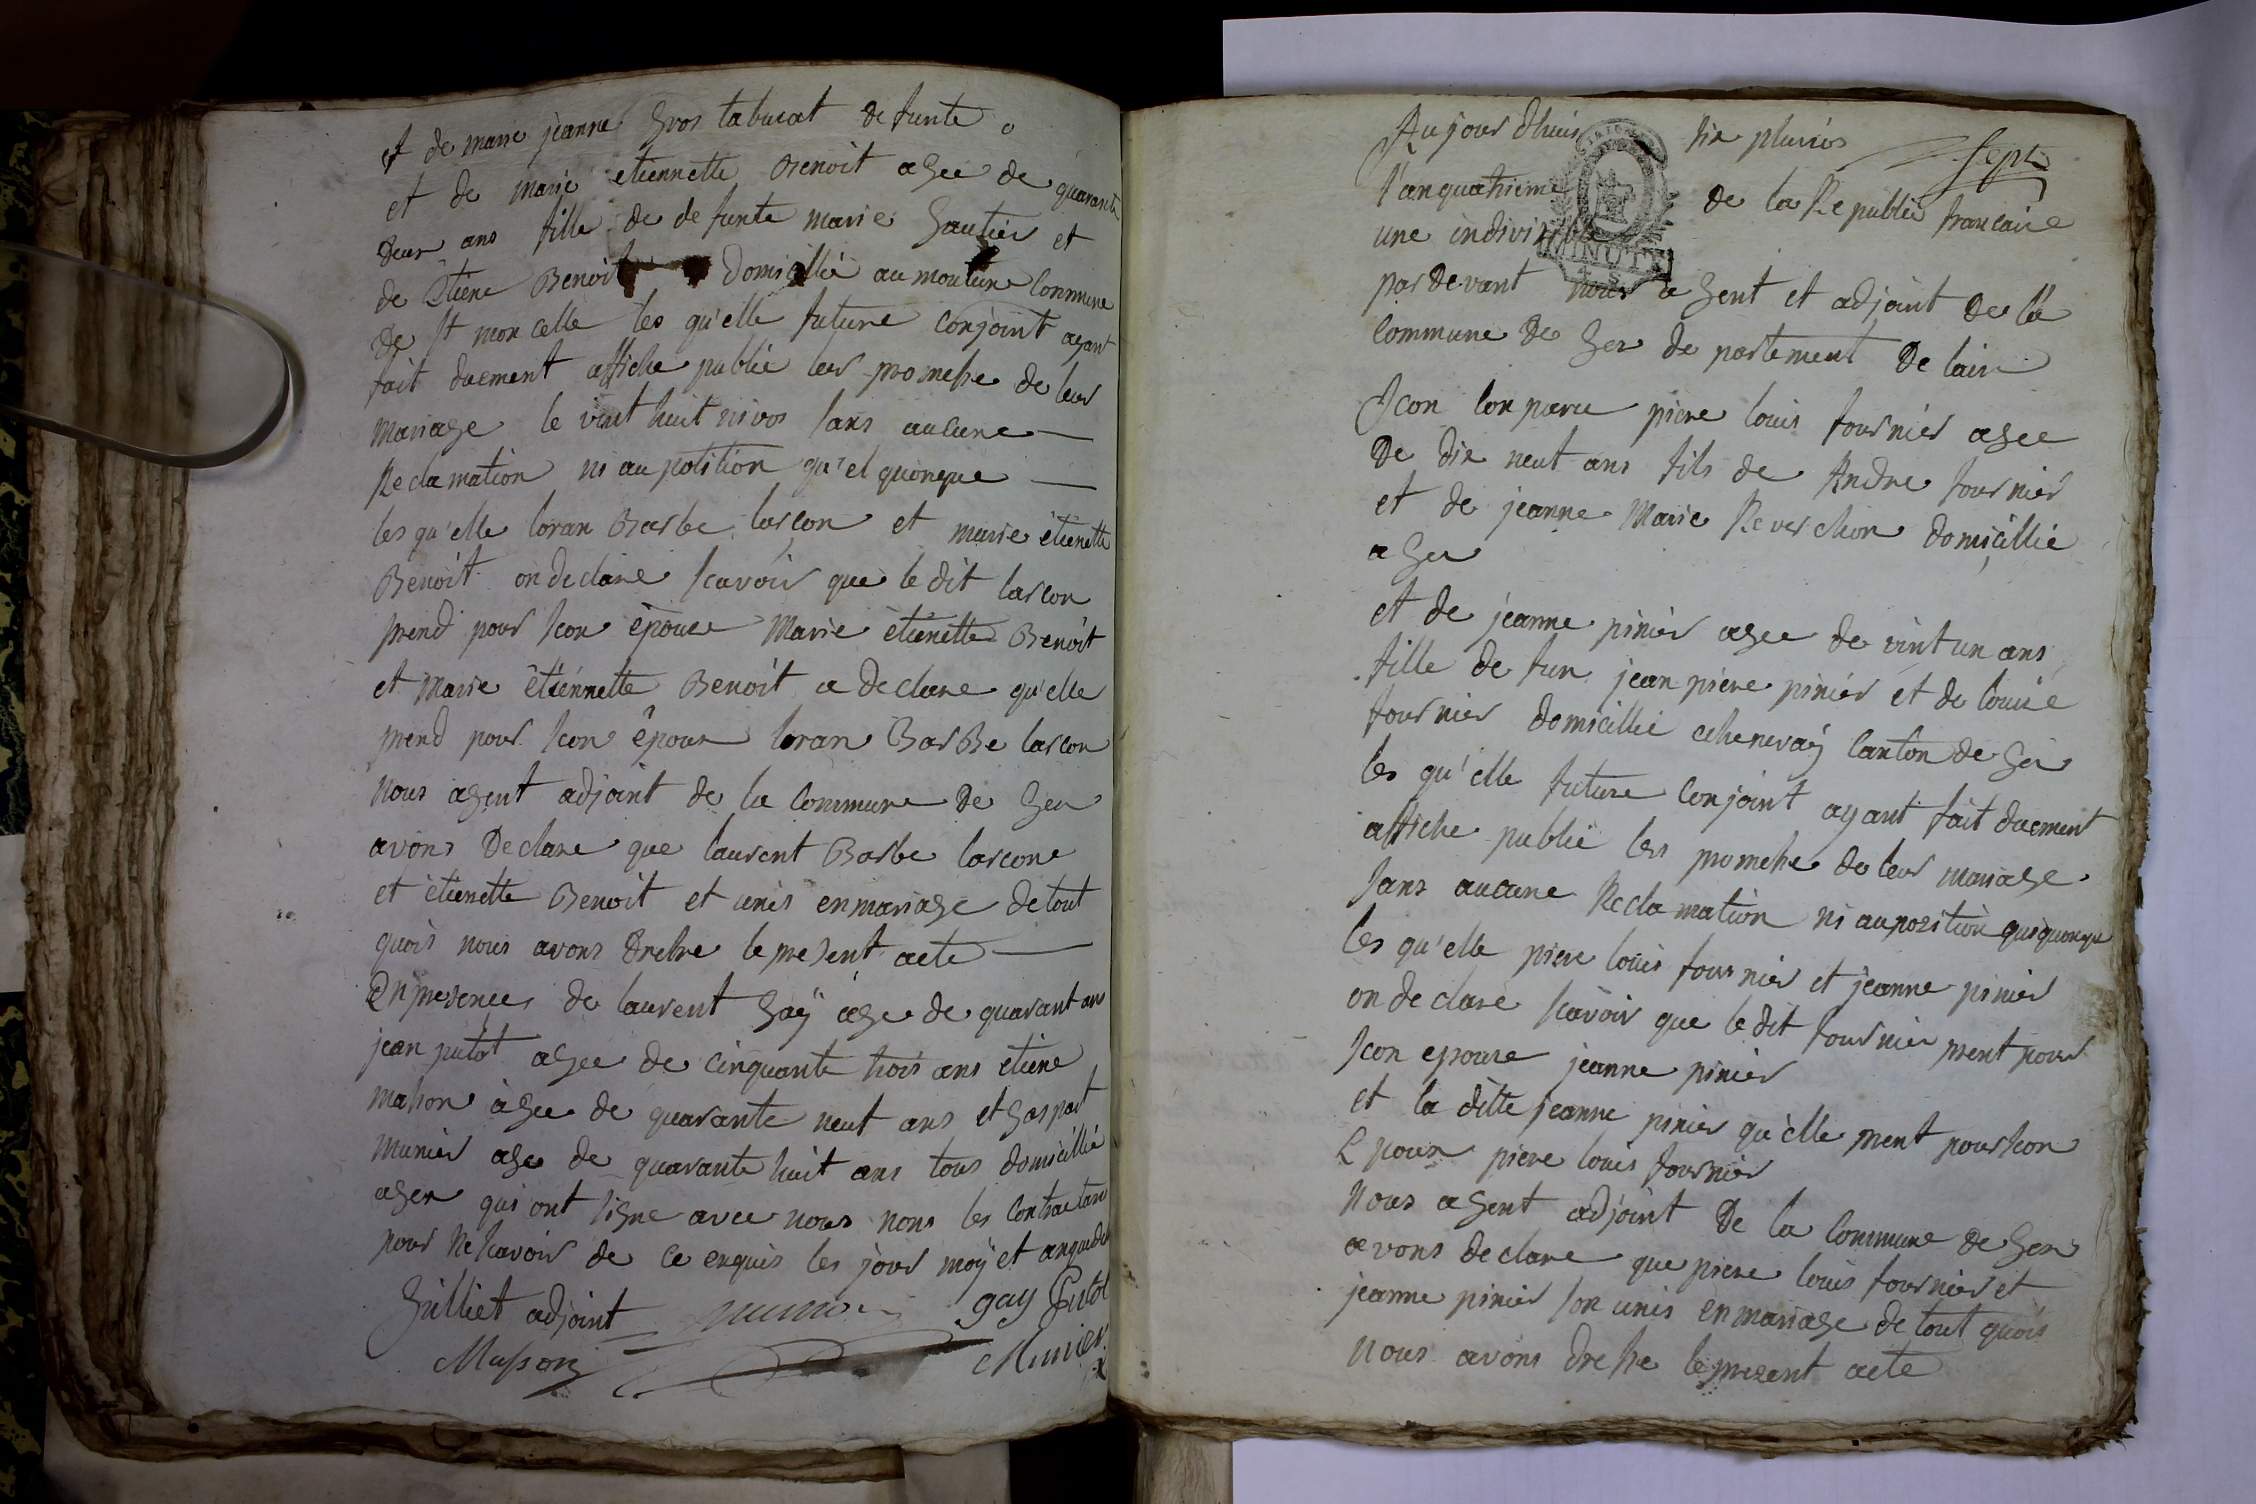 et de marie jeanne gros tabusat defunte
et de marie etiennette Benoit agée de quarante
deux ans fille de defunte marie gautier et
de Etiene Benoit domicillié au moulune Commune
de St moncelle les qu'elle future conjoint ayant
fait duement affiche publié leur promesse de leur
mariage le vint huit nivos sans aucune
Reclamation ni auposition qu'el quonque
les qu'elle loran Barbe larcon et marie étienette
Benoit on declare scavoir que le dit larcon
prend pour scon épouse Marie étienette Benoit
et Marie étiénnette Benoit a declare qu'elle
prend pour scon époux loran BarBe larcon
Nous agent adjoint de la Commune de Gex
avons Declare que laurent Barbe larcone
et étienette Benoit et unis en mariage de tout
quois nous avons dresre le present acte
En presences de laurent Gaÿ age de quarant ans
jean putot agee de cinquante trois ans etiene
masson agee de quarante neuf ans et gaspart
munier age de quarante huit ans tous domicillié
agex qui ont signe avec nous nons les contractans
pour ne scavoir de ce enquis les jour moÿ et an que de
Gilliet adjoint gay Putot
Masson Munier
Aujourdhuis six pluvios sept
l'an quatrieme de la Republie francaise
une indivisible
MINUTE
par devant nous agent et adjoint de la
Commune de Gex departement De lain
Scon Conparu piere louis fournier agee
De dix neuf ans fils de Andre fournier
et de jeanne Marie Reverchon domicillié
a Gex
et de jeanne pinier agee de vint un ans
fille de fun jean piere pinier et de louise
fournier domicillié achenevaÿ Canton de Gex
les qu'elle future Conjoint ayant fait duement
affiche publié leur promesse de leur mariage
sans aucune Reclamation ni auposition quiquonque
les qu'elle piere louis fournier et jeanne pinier
on declare scavoir que le dit fournier prent pour
scon epouse jeanne pinier
et la ditte jeanne pinier qu'elle prent pour scon
Epoux piere louis fournier
Nous agent adjoint De la Commune de Gex
avons declare que piere louis fournier et
jeanne pinier son unis en mariage de tout quois
Nous avons dresse le present acte